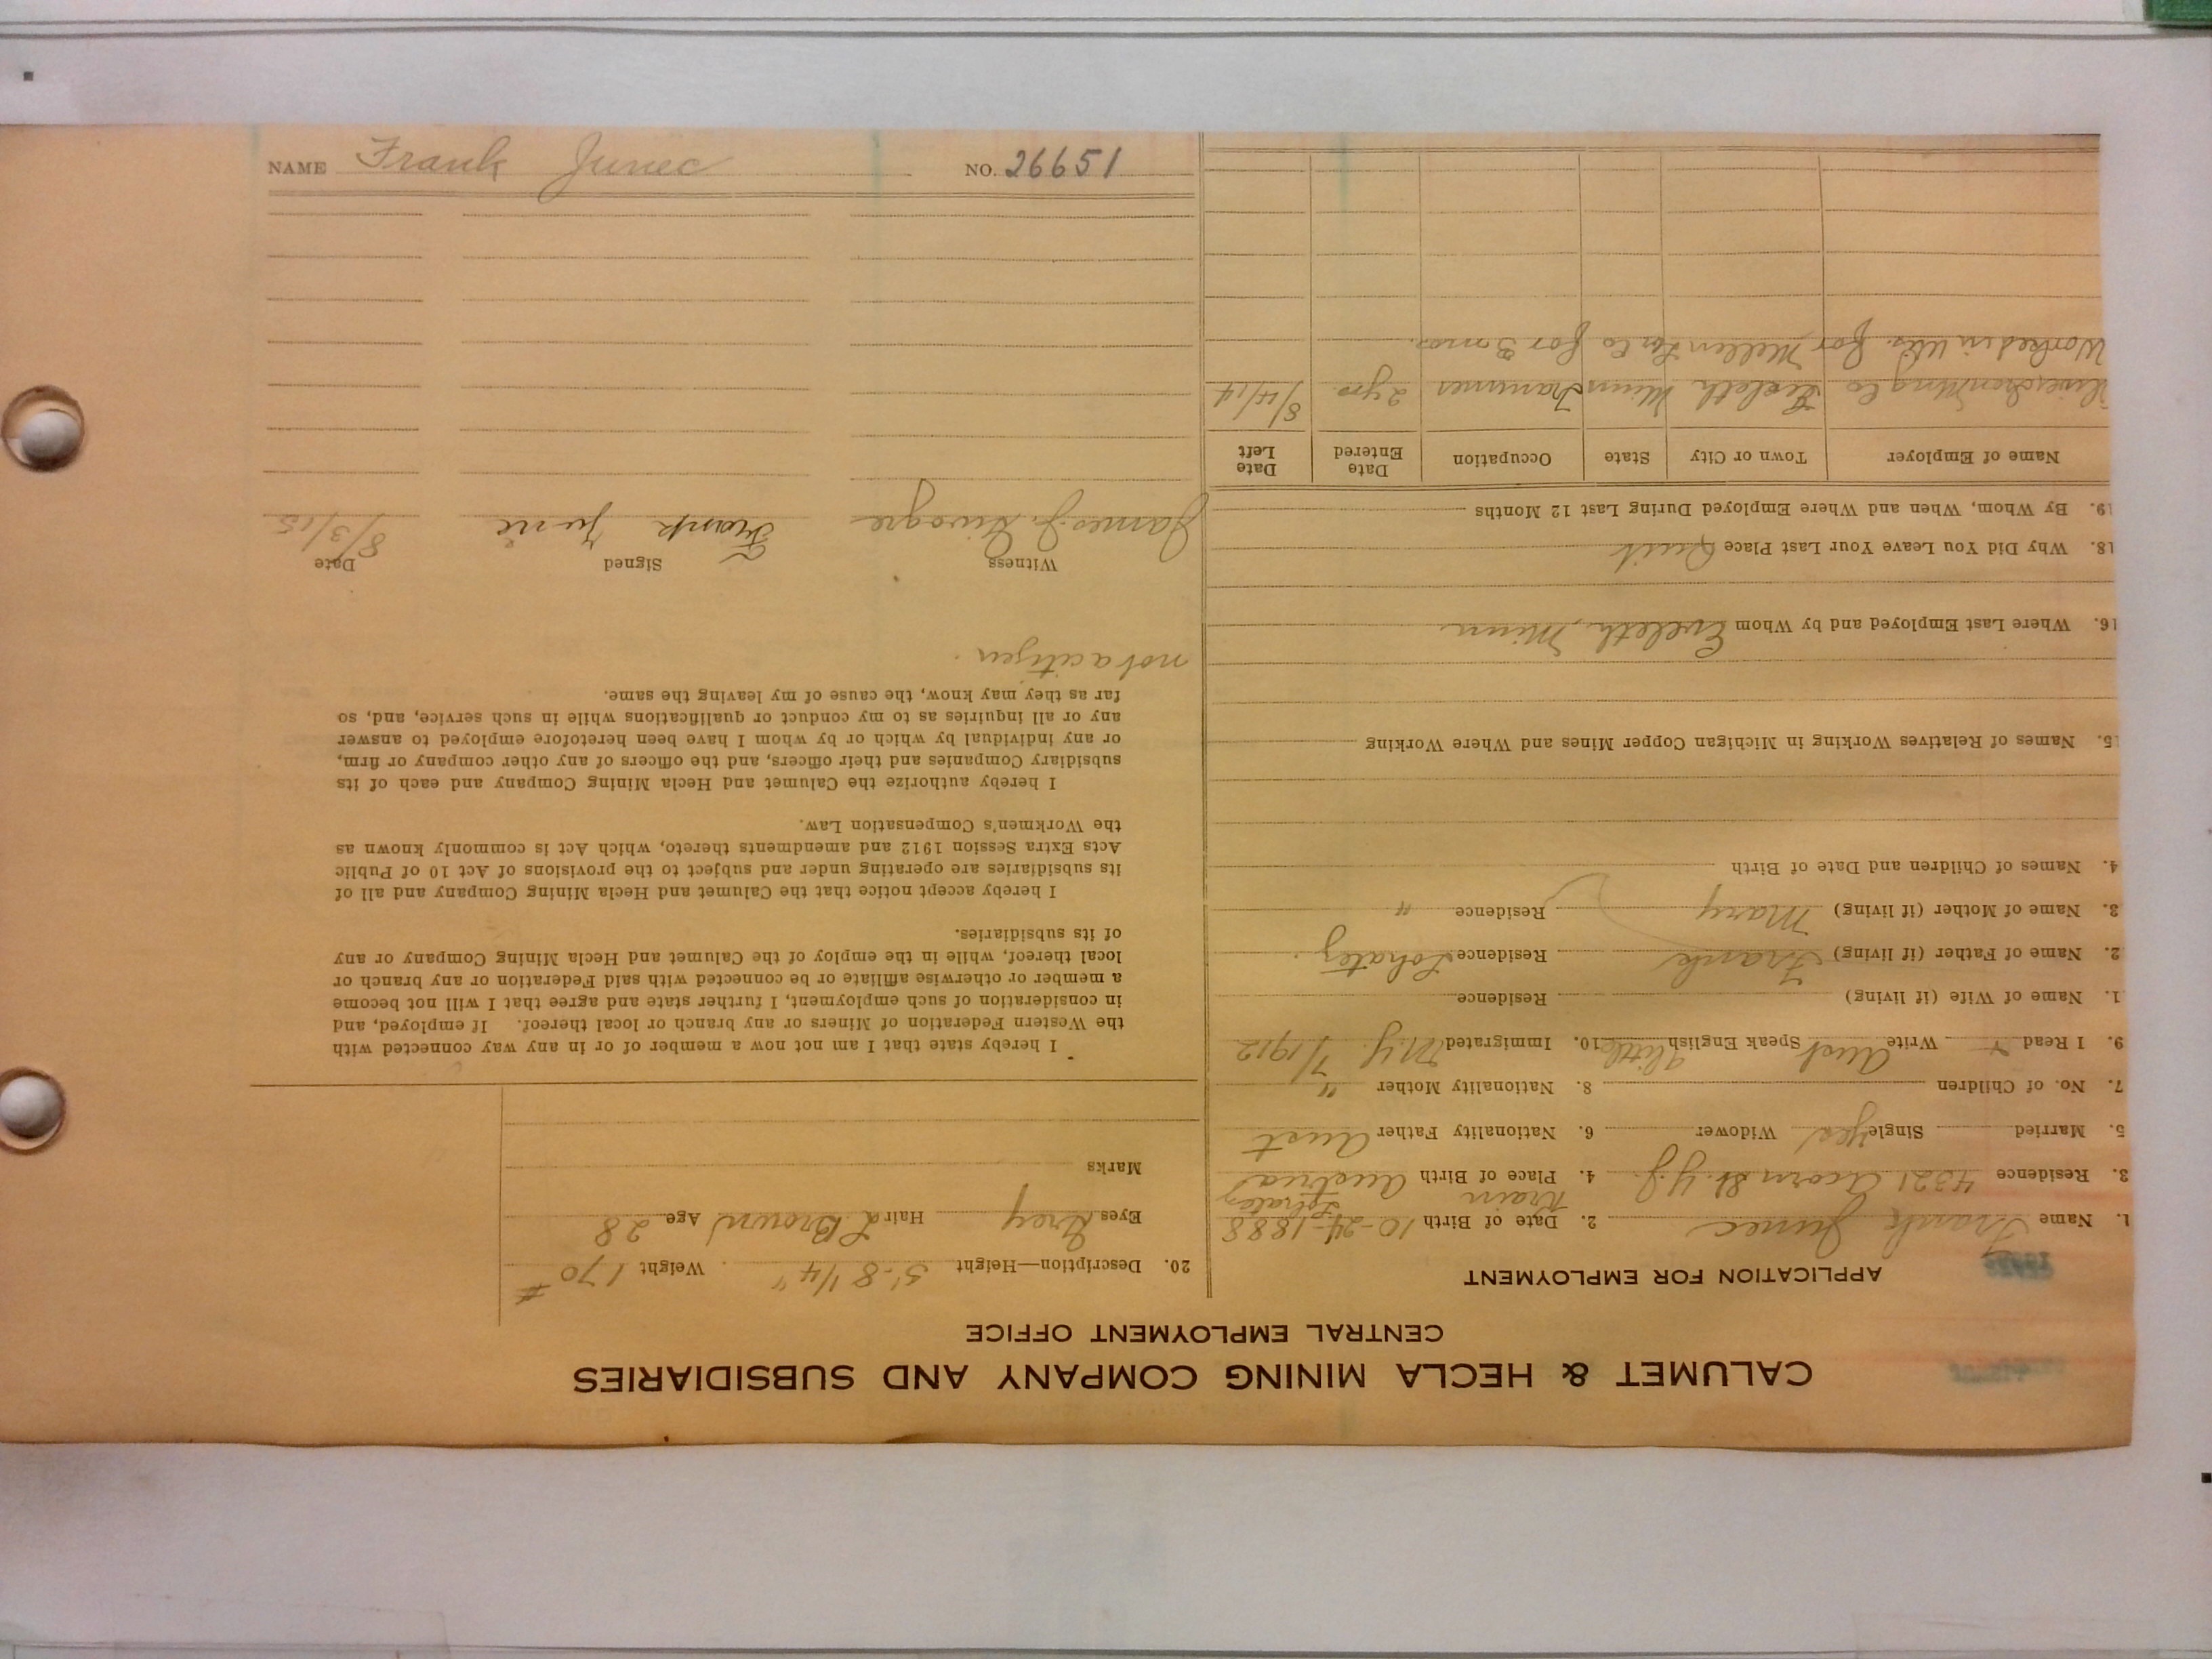 CALUMET & HECLA MINING COMPANY AND SUBSIDIARIES
CENTRAL EMPLOYMENT OFFICE
APPLICATION FOR EMPLOYMENT
1. Name Frank Junec 2. Date of Birth 10-24-1888
Krain
3. Residence 4321 Acorn St. Y.J. 4. Place of Birth Austria
5. Married Single yes Widower 6. Nationality Father Aust
7. No. of Children 8. Nationality Mother "
9. I Read Write Aust Speak English little 10. Immigrated N.Y. 7/1912
1. Name of Wife (if living) Residence
2. Name of Father (if living) Frank Residence
3. Name of Mother (if living) Mary Residence "
4. Names of Children and Date of Birth
15. Names of Relatives Working in Michigan Copper Mines and Where Working
16. Where Last Employed and by Whom Eveleth, Minn
18. Why Did You Leave Your Last Place Quit
19. By Whom, When and Where Employed During Last 12 Months
Name of Employer Town or City State Occupation Date Entered Date Left
Mng Co Eveleth Minn Trammer 2 yrs 8/4/14
Worked in Wis. for Mellen Lbr Co for 3 mos.
20. Description—Height 5'-8 1/4" Weight 170 #
Eyes Grey Hair L Brown Age 28
Marks
I hereby state that I am not now a member of or in any way connected with
the Western Federation of Miners or any branch or local thereof. If employed, and
in consideration of such employment, I further state and agree that I will not become
a member or otherwise affiliate or be connected with said Federation or any branch or
local thereof, while in the employ of the Calumet and Hecla Mining Company or any
of its subsidiaries.
I hereby accept notice that the Calumet and Hecla Mining Company and all of
its subsidiaries are operating under and subject to the provisions of Act 10 of Public
Acts Extra Session 1912 and amendments thereto, which Act is commonly known as
the Workmen's Compensation Law.
I hereby authorize the Calumet and Hecla Mining Company and each of its
subsidiary Companies and their officers, and the officers of any other company or firm,
or any individual by which or by whom I have been heretofore employed to answer
any or all inquiries as to my conduct or qualifications while in such service, and, so
far as they may know, the cause of my leaving the same.
not a citizen.
Witness Signed Date
James J. Frank Junic 8/3/15
NAME Frank Junec NO. 26651